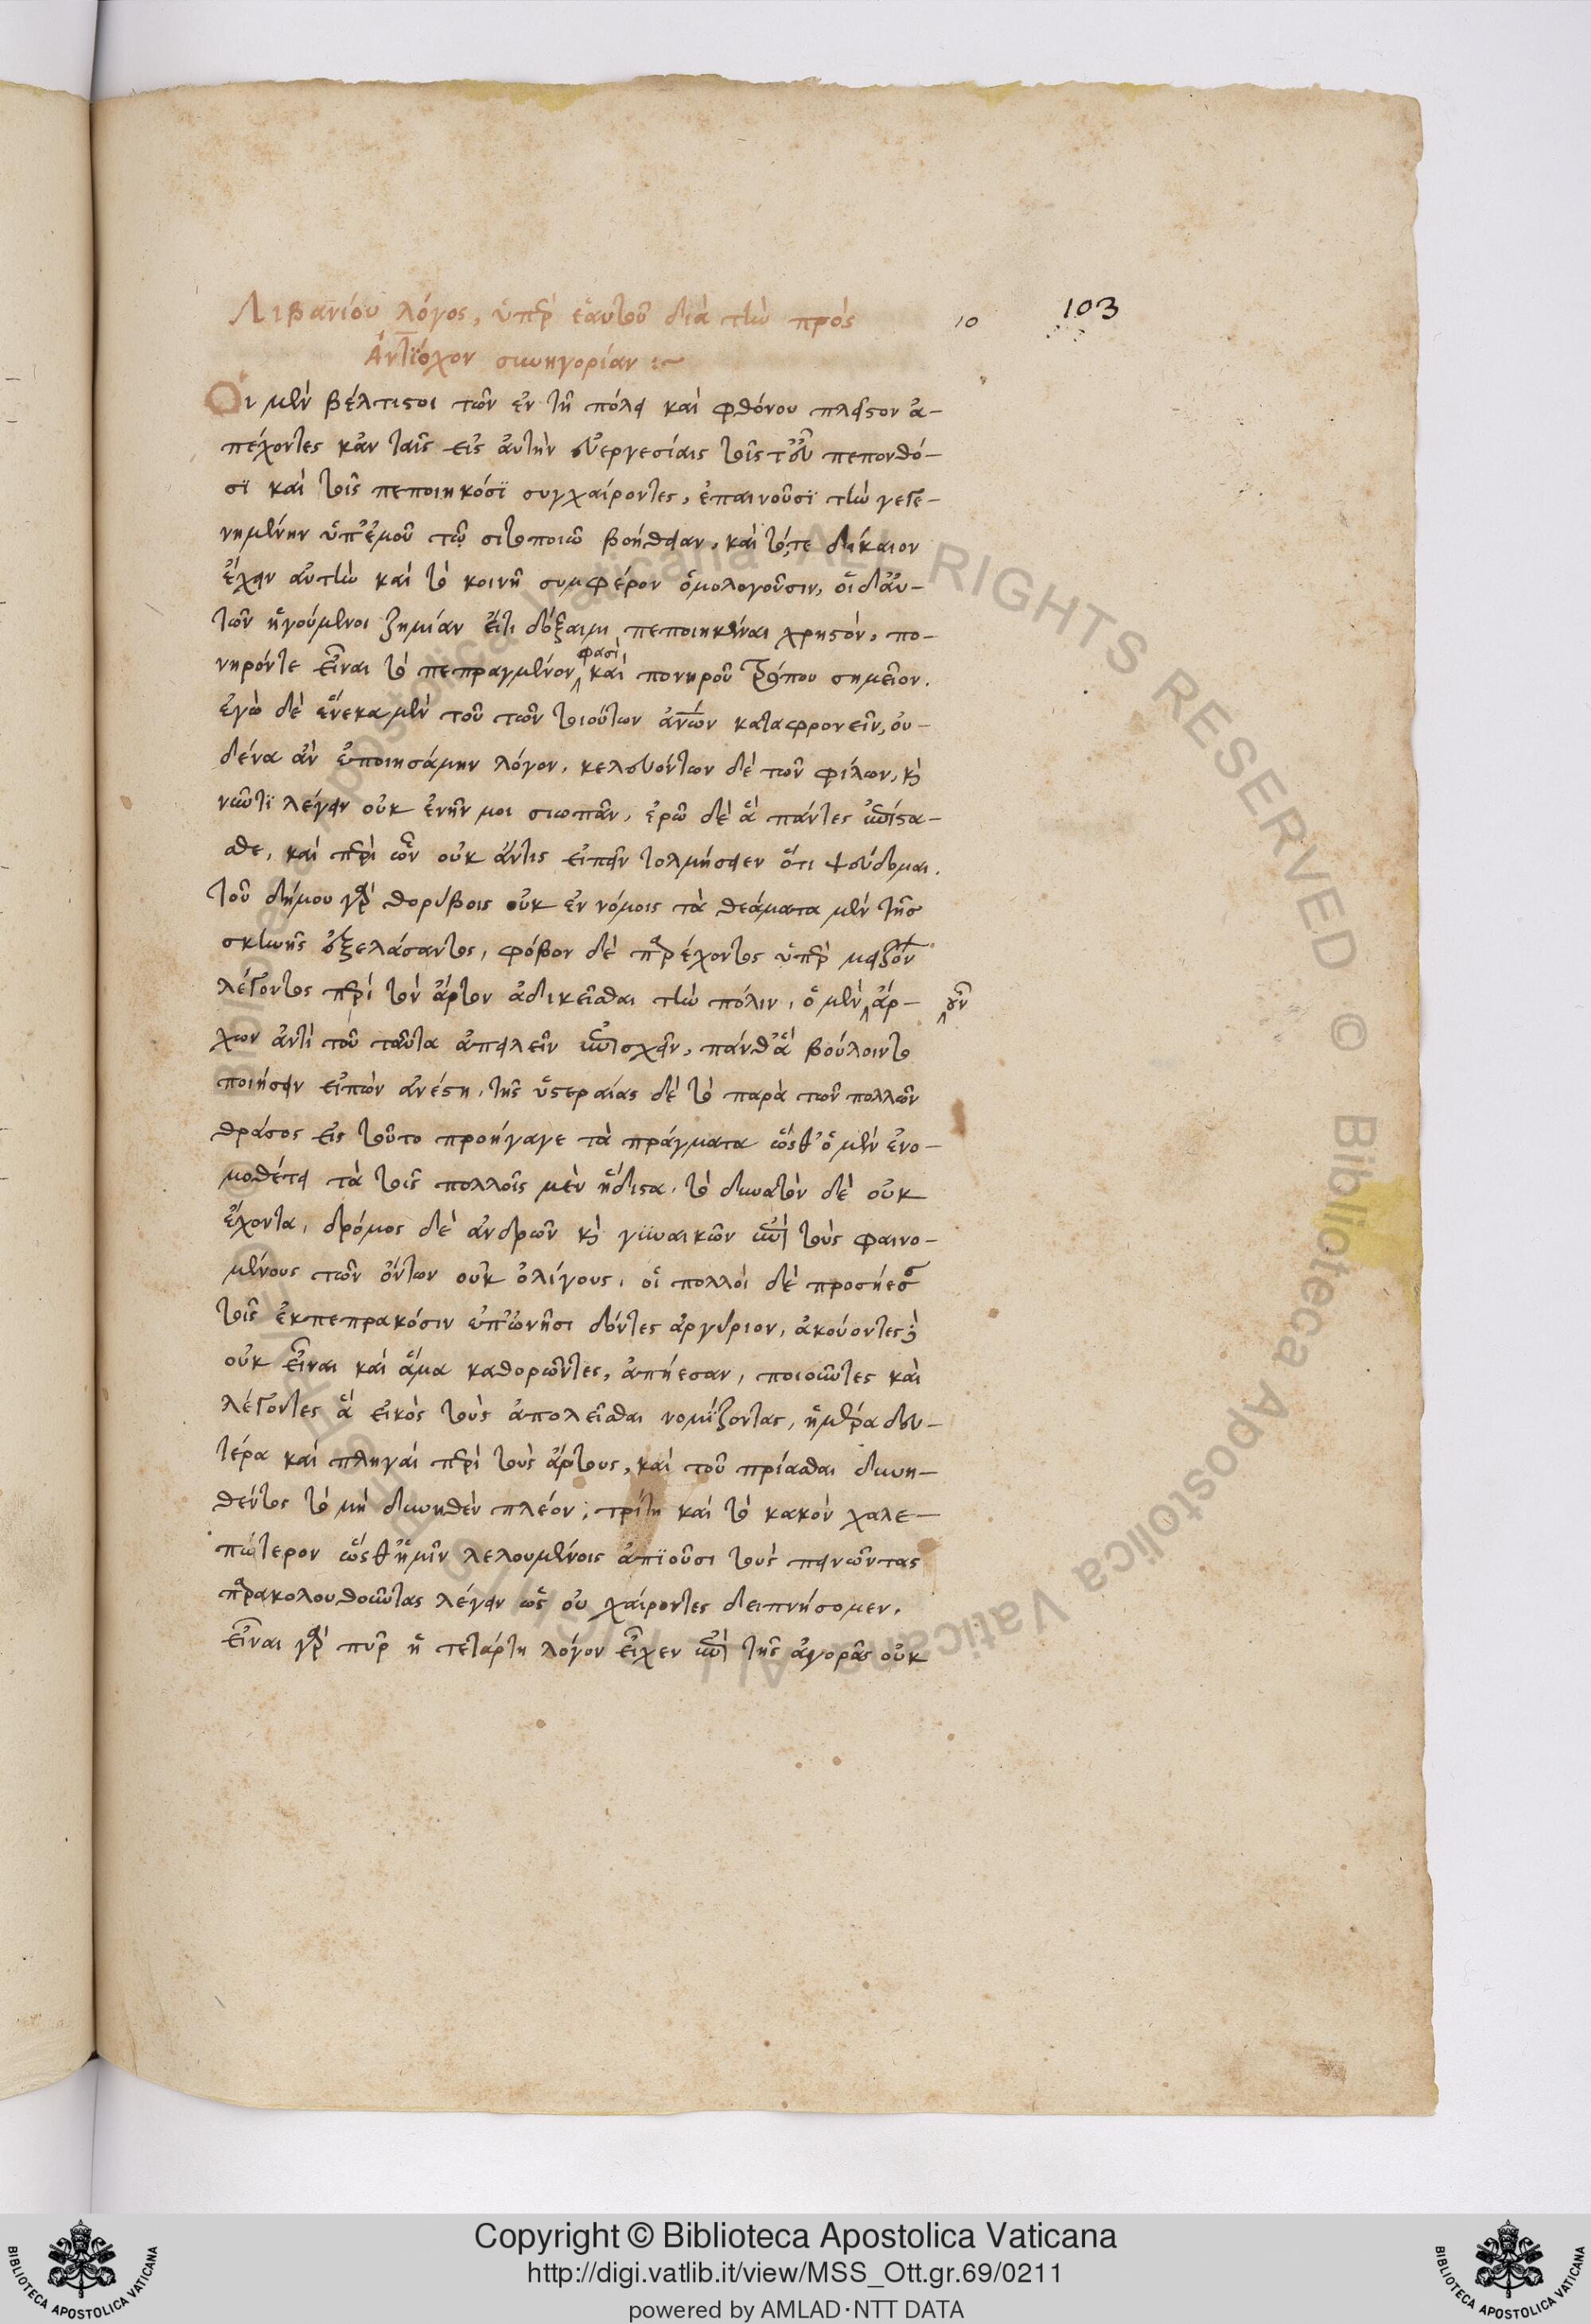 Λιβανίου λόγος, ὑπὲρ ἑαυτοῦ διὰ τὴν πρὸς
10
103
Ἀντίοχον συνηγορίαν :~
Οἱ μὲν βέλτιστοι τῶν ἐν τῇ πόλει καὶ φθόνου πλεῖστον ἀ-
πέχοντες κἀν ταῖς εἰς αὐτὴν εὐεργεσίαις τοῖς τ' εὖ πεπονθό-
σϊ καὶ τοῖς πεποιηκόσϊ συγχαίροντες, ἐπαινοῦσϊ τὴν γεγε-
νημένην ὑπ' ἐμοῦ τῷ σιτοποιῷ βοήθειαν, καὶ τό,τε δίκαιον
ἔχειν αὐτὴν καὶ τὸ κοινῇ συμφέρον ὁμολογοῦσιν, οἱ δ' αὑ-
τῶν ἡγούμενοι ζημίαν εἴ τι δόξαιμι πεποιηκέναι χρηστόν, πο-
νηρόν τε εἶναι τὸ πεπραγμένον φασὶ καὶ πονηροῦ τρόπου σημεῖον.
ἐγὼ δὲ ἕνεκα μὲν τοῦ τῶν τοιούτων ἀνων καταφρονεῖν, οὐ-
δένα ἂν ἐποιησάμην λόγον, κελευόντων δὲ τῶν φίλων, κ
νῶντϊ λέγειν οὐκ ἐνῆν μοι σιωπᾶν, ἐρῶ δὲ ἃ πάντες ἐπίστα-
σθε, καὶ περὶ ὧν οὐκ ἄν τις εἰπεῖν τολμήσειεν ὅτι ψεύδομαι.
τοῦ δήμου γὰρ θορύβοις οὐκ ἐν νόμοις τὰ θεάματα μὲν τῆς
σκηνῆς ἐξελάσαντος, φόβον δὲ παρέχοντος ὑπὲρ μειζόνων
λέγοντος περὶ τὸν ἄρτον ἀδικεῖσθαι τὴν πόλιν, ὁ μὲν οὖν ἄρ-
χων ἀντὶ τοῦ ταῦτα ἀπειλεῖν ἐπισχεῖν, πάνθ' ἃ βούλοιντο
ποιήσειν εἰπὼν ἀνέστη, τῆς ὑστεραίας δὲ τὸ παρὰ τῶν πολλῶν
θράσος εἰς τοῦτο προήγαγε τὰ πράγματα ὥσθ' ὁ μὲν ἐνο-
μοθέτει τὰ τοῖς πολλοῖς μὲν ἥδιστα, τὸ δυνατὸν δὲ οὐκ
ἔχοντα, δρόμος δὲ ἀνδρῶν κ γυναικῶν ἐπὶ τοὺς φαινο-
μένους τῶν ὄντων οὐκ ὀλίγους, οἱ πολλοὶ δὲ προσήεσαν
τοῖς ἐκπεπρακόσιν ἐπ' ὠνῆσι δόντες ἀργύριον, ἀκούοντες δ
οὐκ εἶναι καὶ ἅμα καθορῶντες, ἀπήεσαν, ποιοῦντες καὶ
λέγοντες ἃ εἰκὸς τοὺς ἀπολεῖσθαι νομϊζοντας, ἡμέρα δευ-
τέρα καὶ πληγαὶ περὶ τοὺς ἄρτους, καὶ τοῦ πρίασθαι δυνη-
θέντος τὸ μὴ δυνηθὲν πλέον; τρίτη καὶ τὸ κακὸν χαλε-
πώτερον ὥσθ' ἡμῖν λελουμένοις ἀπϊοῦσι τοὺς πεινῶντας
παρακολουθοῦντας λέγειν ὡς οὐ χαίροντες δειπνήσομεν,
εἶναι γὰρ πῦρ ἡ τετάρτη λόγον εἶχεν ἐπὶ τῆς ἀγορᾶς οὐκ
Copyright © Biblioteca Apostolica Vaticana
http://digi.vatlib.it/view/MSS_Ott.gr.69/0211
powered by AMLAD·NTT DATA